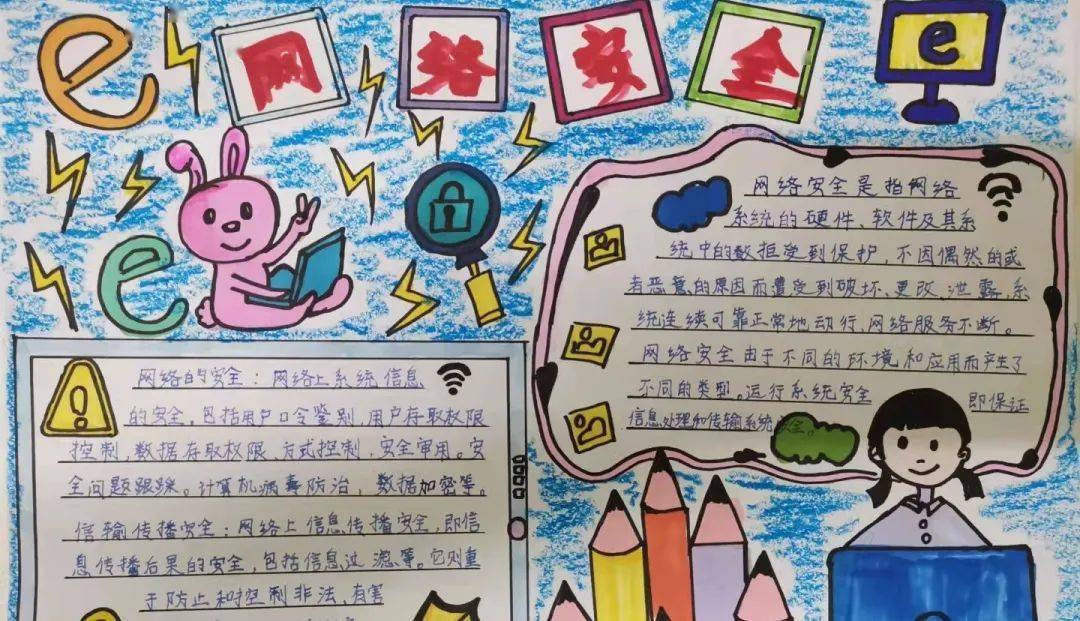 e 网络安全 e
e
网络安全是指网络
系统的硬件、软件及其系
统中的数据受到保护,不因偶然的或
者恶意的原因而遭受到破坏、更改、泄露,系
统连续可靠正常地动行,网络服务不断。
网络安全由于不同的环境和应用而产生了
不同的类型。运行系统安全 即保证
信息处理和传输系统安全。
网络的安全:网络上系统信息
的安全。包括用户口令鉴别,用户存取权限
控制,数据存取权限、方式控制,安全审用。安
全问题跟踩。计算机病毒防治,数据加密等。
信输传播安全:网络上信息传播安全,即信
息传播后果的安全,包括信息过滤等。它则重
于防止和控制非法、有害